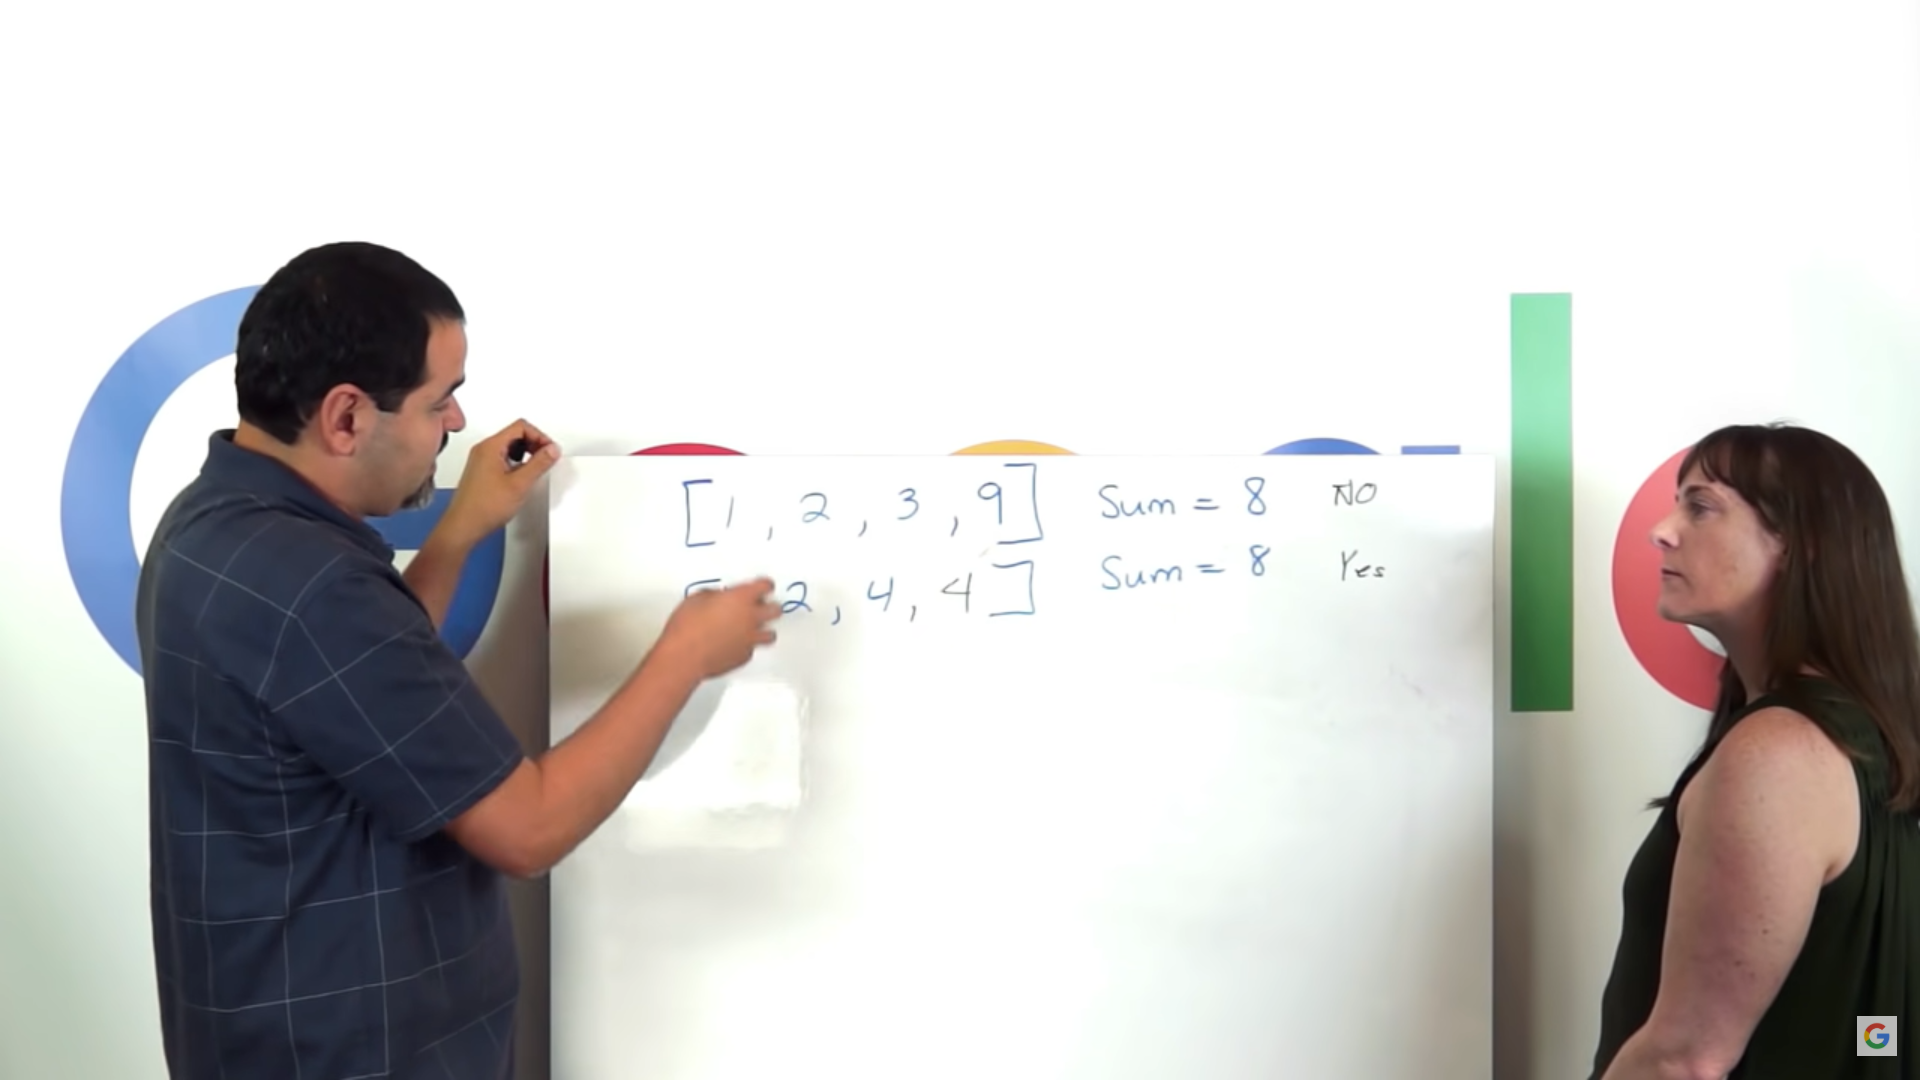 [1, 2, 3, 9] Sum = 8 NO
[ 2, 4, 4] Sum = 8 Yes
G l
G